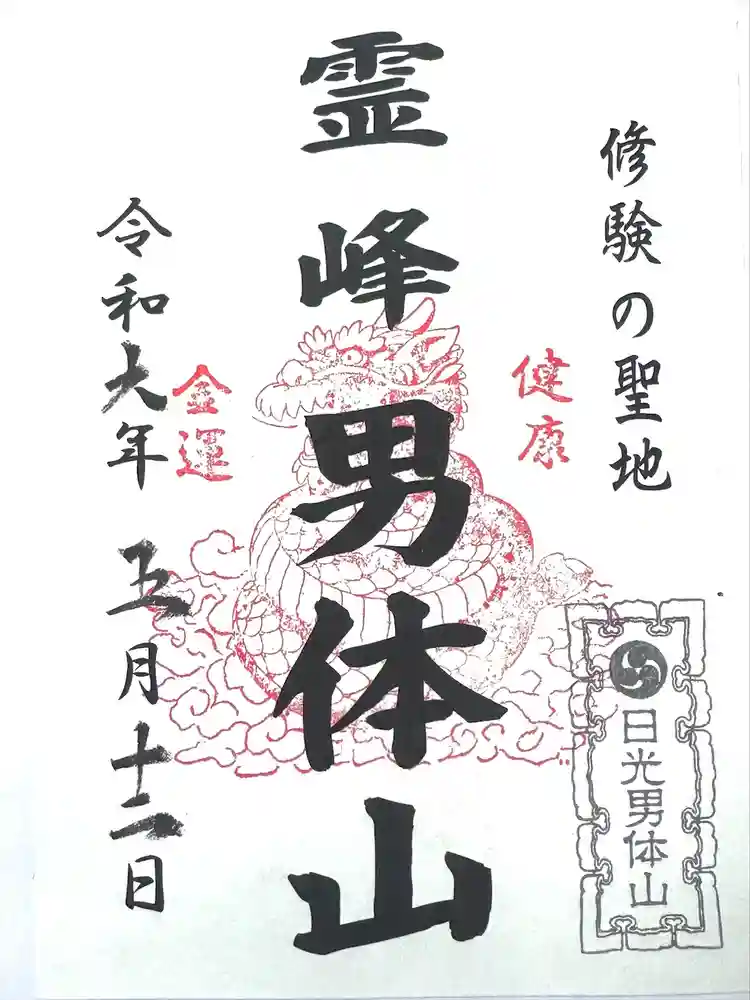 修験の聖地
日光男体山
健康
霊峰男体山
金運
令和六年 五月十二日